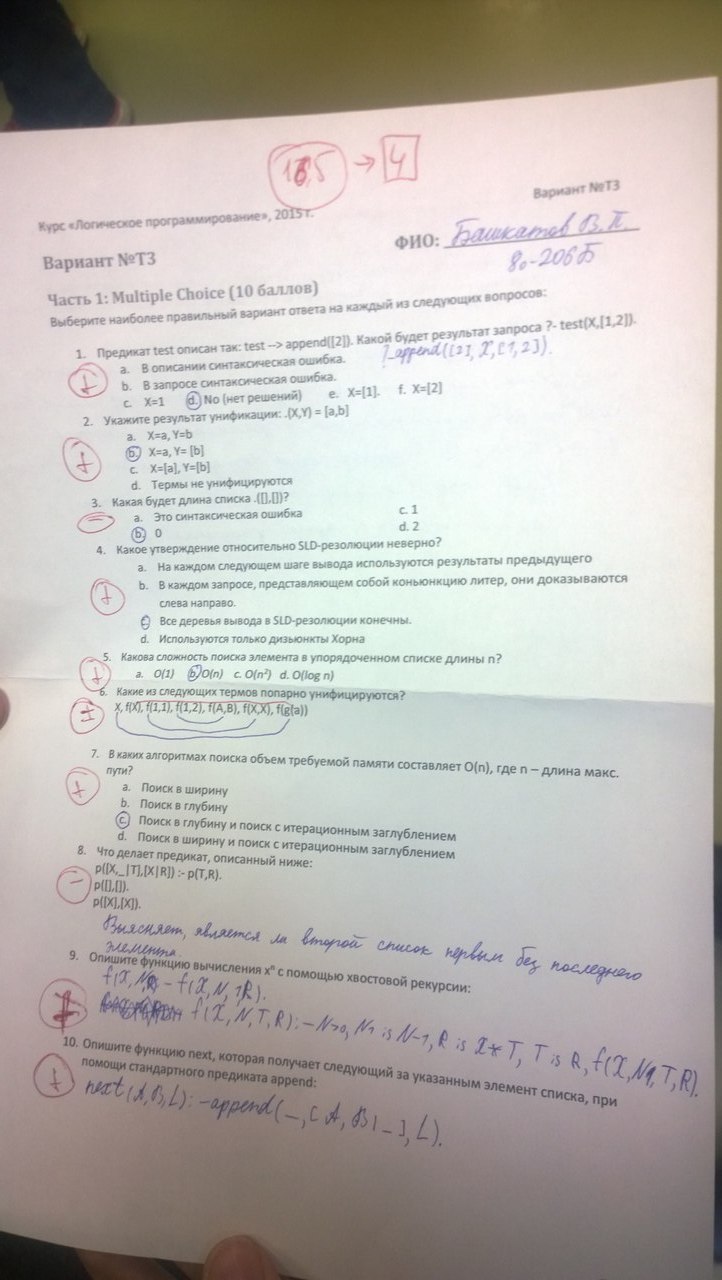 16,5 → 4
Вариант №Т3
Курс «Логическое программирование», 2015 г.
ФИО: Башкатов В.П.
8о-206Б
Вариант №Т3
Часть 1: Multiple Choice (10 баллов)
Выберите наиболее правильный вариант ответа на каждый из следующих вопросов:
1. Предикат test описан так: test --> append([2]). Какой будет результат запроса ?- test(X,[1,2]).
?-append([2], X, [1,2]).
a. В описании синтаксическая ошибка.
b. В запросе синтаксическая ошибка.
c. X=1 d. No (нет решений) e. X=[1]. f. X=[2]
2. Укажите результат унификации: .(X,Y) = [a,b]
a. X=a, Y=b
b. X=a, Y= [b]
c. X=[a], Y=[b]
d. Термы не унифицируются
3. Какая будет длина списка .([],[])?
a. Это синтаксическая ошибка c. 1
b. 0 d. 2
4. Какое утверждение относительно SLD-резолюции неверно?
a. На каждом следующем шаге вывода используются результаты предыдущего
b. В каждом запросе, представляющем собой коньюнкцию литер, они доказываются
слева направо.
c. Все деревья вывода в SLD-резолюции конечны.
d. Используются только дизьюнкты Хорна
5. Какова сложность поиска элемента в упорядоченном списке длины n?
a. O(1) b. O(n) c. O(n²) d. O(log n)
6. Какие из следующих термов попарно унифицируются?
X, f(X), f(1,1), f(1,2), f(A,B), f(X,X), f(g(a))
7. В каких алгоритмах поиска объем требуемой памяти составляет O(n), где n – длина макс.
пути?
a. Поиск в ширину
b. Поиск в глубину
c. Поиск в глубину и поиск с итерационным заглублением
d. Поиск в ширину и поиск с итерационным заглублением
8. Что делает предикат, описанный ниже:
p([X,_|T],[X|R]) :- p(T,R).
p([],[]).
p([X],[X]).
Выясняет, является ли второй список первым без последнего
элемента.
9. Опишите функцию вычисления xⁿ с помощью хвостовой рекурсии:
f(X, N, R) :- f(X, N, 1, R).
f(X, N, T, R) :- N>0, N1 is N-1, R is X*T, T is R, f(X, N1, T, R).
10. Опишите функцию next, которая получает следующий за указанным элемент списка, при
помощи стандартного предиката append:
next(A,B,L) :- append(_, [A, B|_], L).